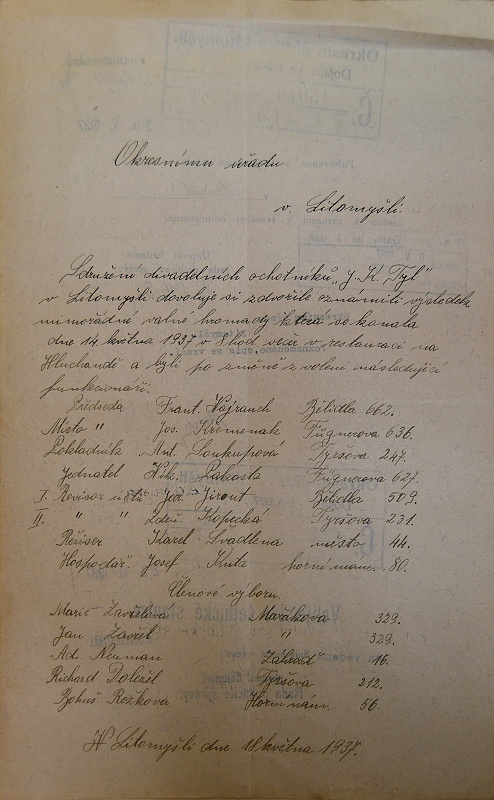 Okresnímu úřadu
v Litomyšli.
Sdružení divadelních ochotníků „J. K. Tyl"
v Litomyšli dovoluje si zdvořile oznámiti výsledek
mimořádné valné hromady která se konala
dne 14. května 1937 v 8 hod več. v restauraci na
Hluchandě a byli po změně zvoleni následující
funkcionáři.
Předseda Frant. Vajrauch Bělidla 662.
Místo " Jos. Křemenák Fügnerova 636.
Pokladník Ant. Soukupová Tyršova 247.
Jednatel Mik. Lukasta Fügnerova 627.
I. Revisor účtů Jar. Jirout Bělidla 509.
II. " " Zdeň. Kopecká Tyršova 231.
Režiser Karel Švadlena město 44.
Hospodář Josef Kuta horní nám. 80.
Členové výboru.
Marie Zavřelova Mařákova 329.
Jan Zavřel " 329.
Ad. Neuman Záhraď 16.
Richard Doležel Tyršova 212.
Bohuš Rožkova Horní nám. 56.
V Litomyšli dne 18 května 1937.